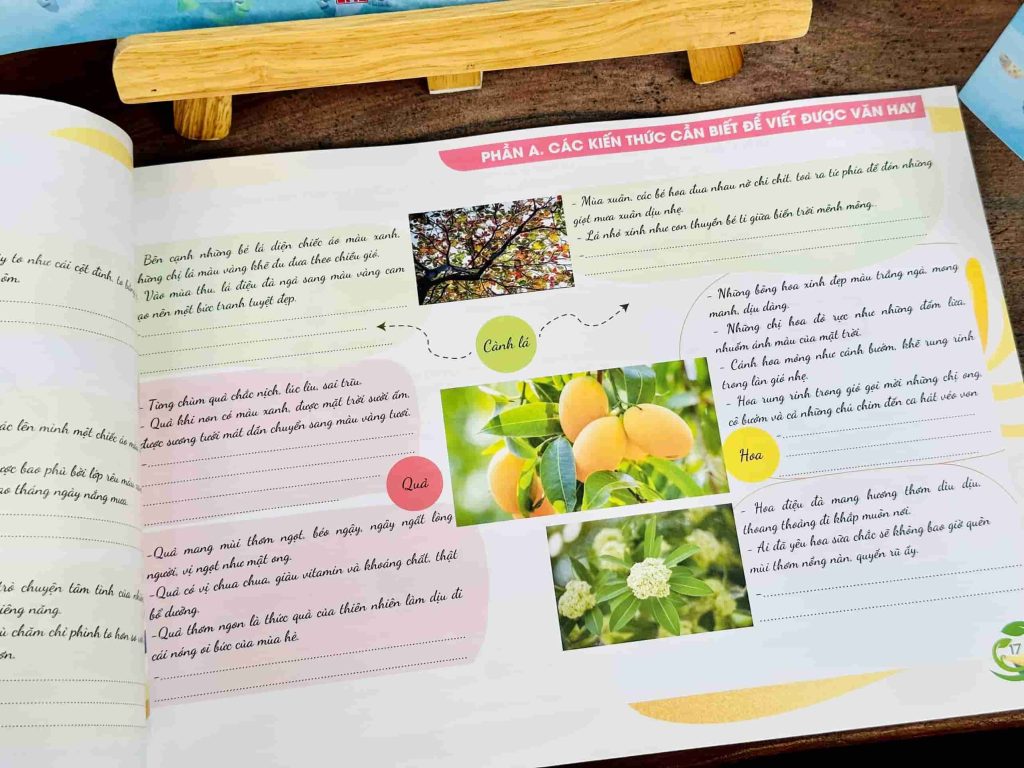 PHẦN A. CÁC KIẾN THỨC CẦN BIẾT ĐỂ VIẾT ĐƯỢC VĂN HAY
to như cái cột đình, to
ôm.
lên mình một chiếc áo
được bao phủ bởi lớp rêu màu
tháng ngày nắng mưa.
trò chuyện tâm tình của
siêng năng.
chăm chỉ phình to hơn so
Bên cạnh những bé lá diện chiếc áo màu xanh,
những chị lá màu vàng khẽ đu đưa theo chiều gió.
Vào mùa thu, lá điệu đà ngả sang màu vàng cam
tạo nên một bức tranh tuyệt đẹp.
- Mùa xuân, các bé hoa đua nhau nở chi chít, toả ra tứ phía để đón những
giọt mưa xuân dịu nhẹ.
- Lá nhỏ xinh như con thuyền bé tí giữa biển trời mênh mông..
Cành lá
- Từng chùm quả chắc nịch, lúc lỉu, sai trĩu.
- Quả khi non có màu xanh, được mặt trời sưởi ấm,
được sương tưới mát dần chuyển sang màu vàng tươi.
-
Quả
-Quả mang mùi thơm ngọt, béo ngậy, ngây ngất lòng
người, vị ngọt như mật ong.
-Quả có vị chua chua, giàu vitamin và khoáng chất, thật
bổ dưỡng.
-Quả thơm ngon là thức quả của thiên nhiên làm dịu đi
cái nóng oi bức của mùa hè.
-
- Những bông hoa xinh đẹp màu trắng ngà, mong
manh, dịu dàng.
- Những chị hoa đỏ rực như những đốm lửa,
nhuốm ánh màu của mặt trời.
- Cánh hoa mỏng như cánh bướm, khẽ rung rinh
trong làn gió nhẹ.
- Hoa rung rinh trong gió gọi mời những chị ong,
cô bướm và cả những chú chim đến ca hát véo von
-
Hoa
- Hoa điệu đà mang hương thơm dìu dịu,
thoang thoảng đi khắp muôn nơi.
- Ai đã yêu hoa sữa chắc sẽ không bao giờ quên
mùi thơm nồng nàn, quyến rũ ấy.
-
17